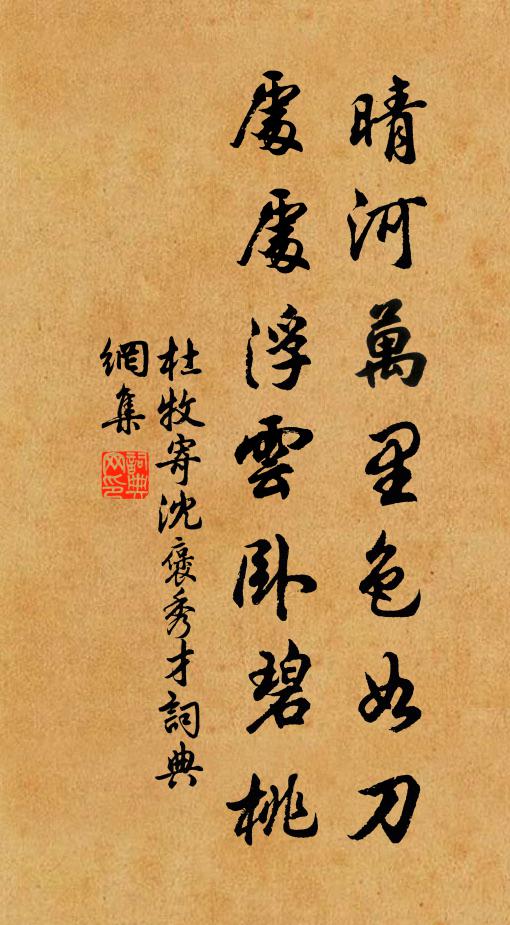 晴河萬里色如刀
處處浮雲卧碧桃
杜牧寄沈褒秀才詞典
網集
詞典
网印